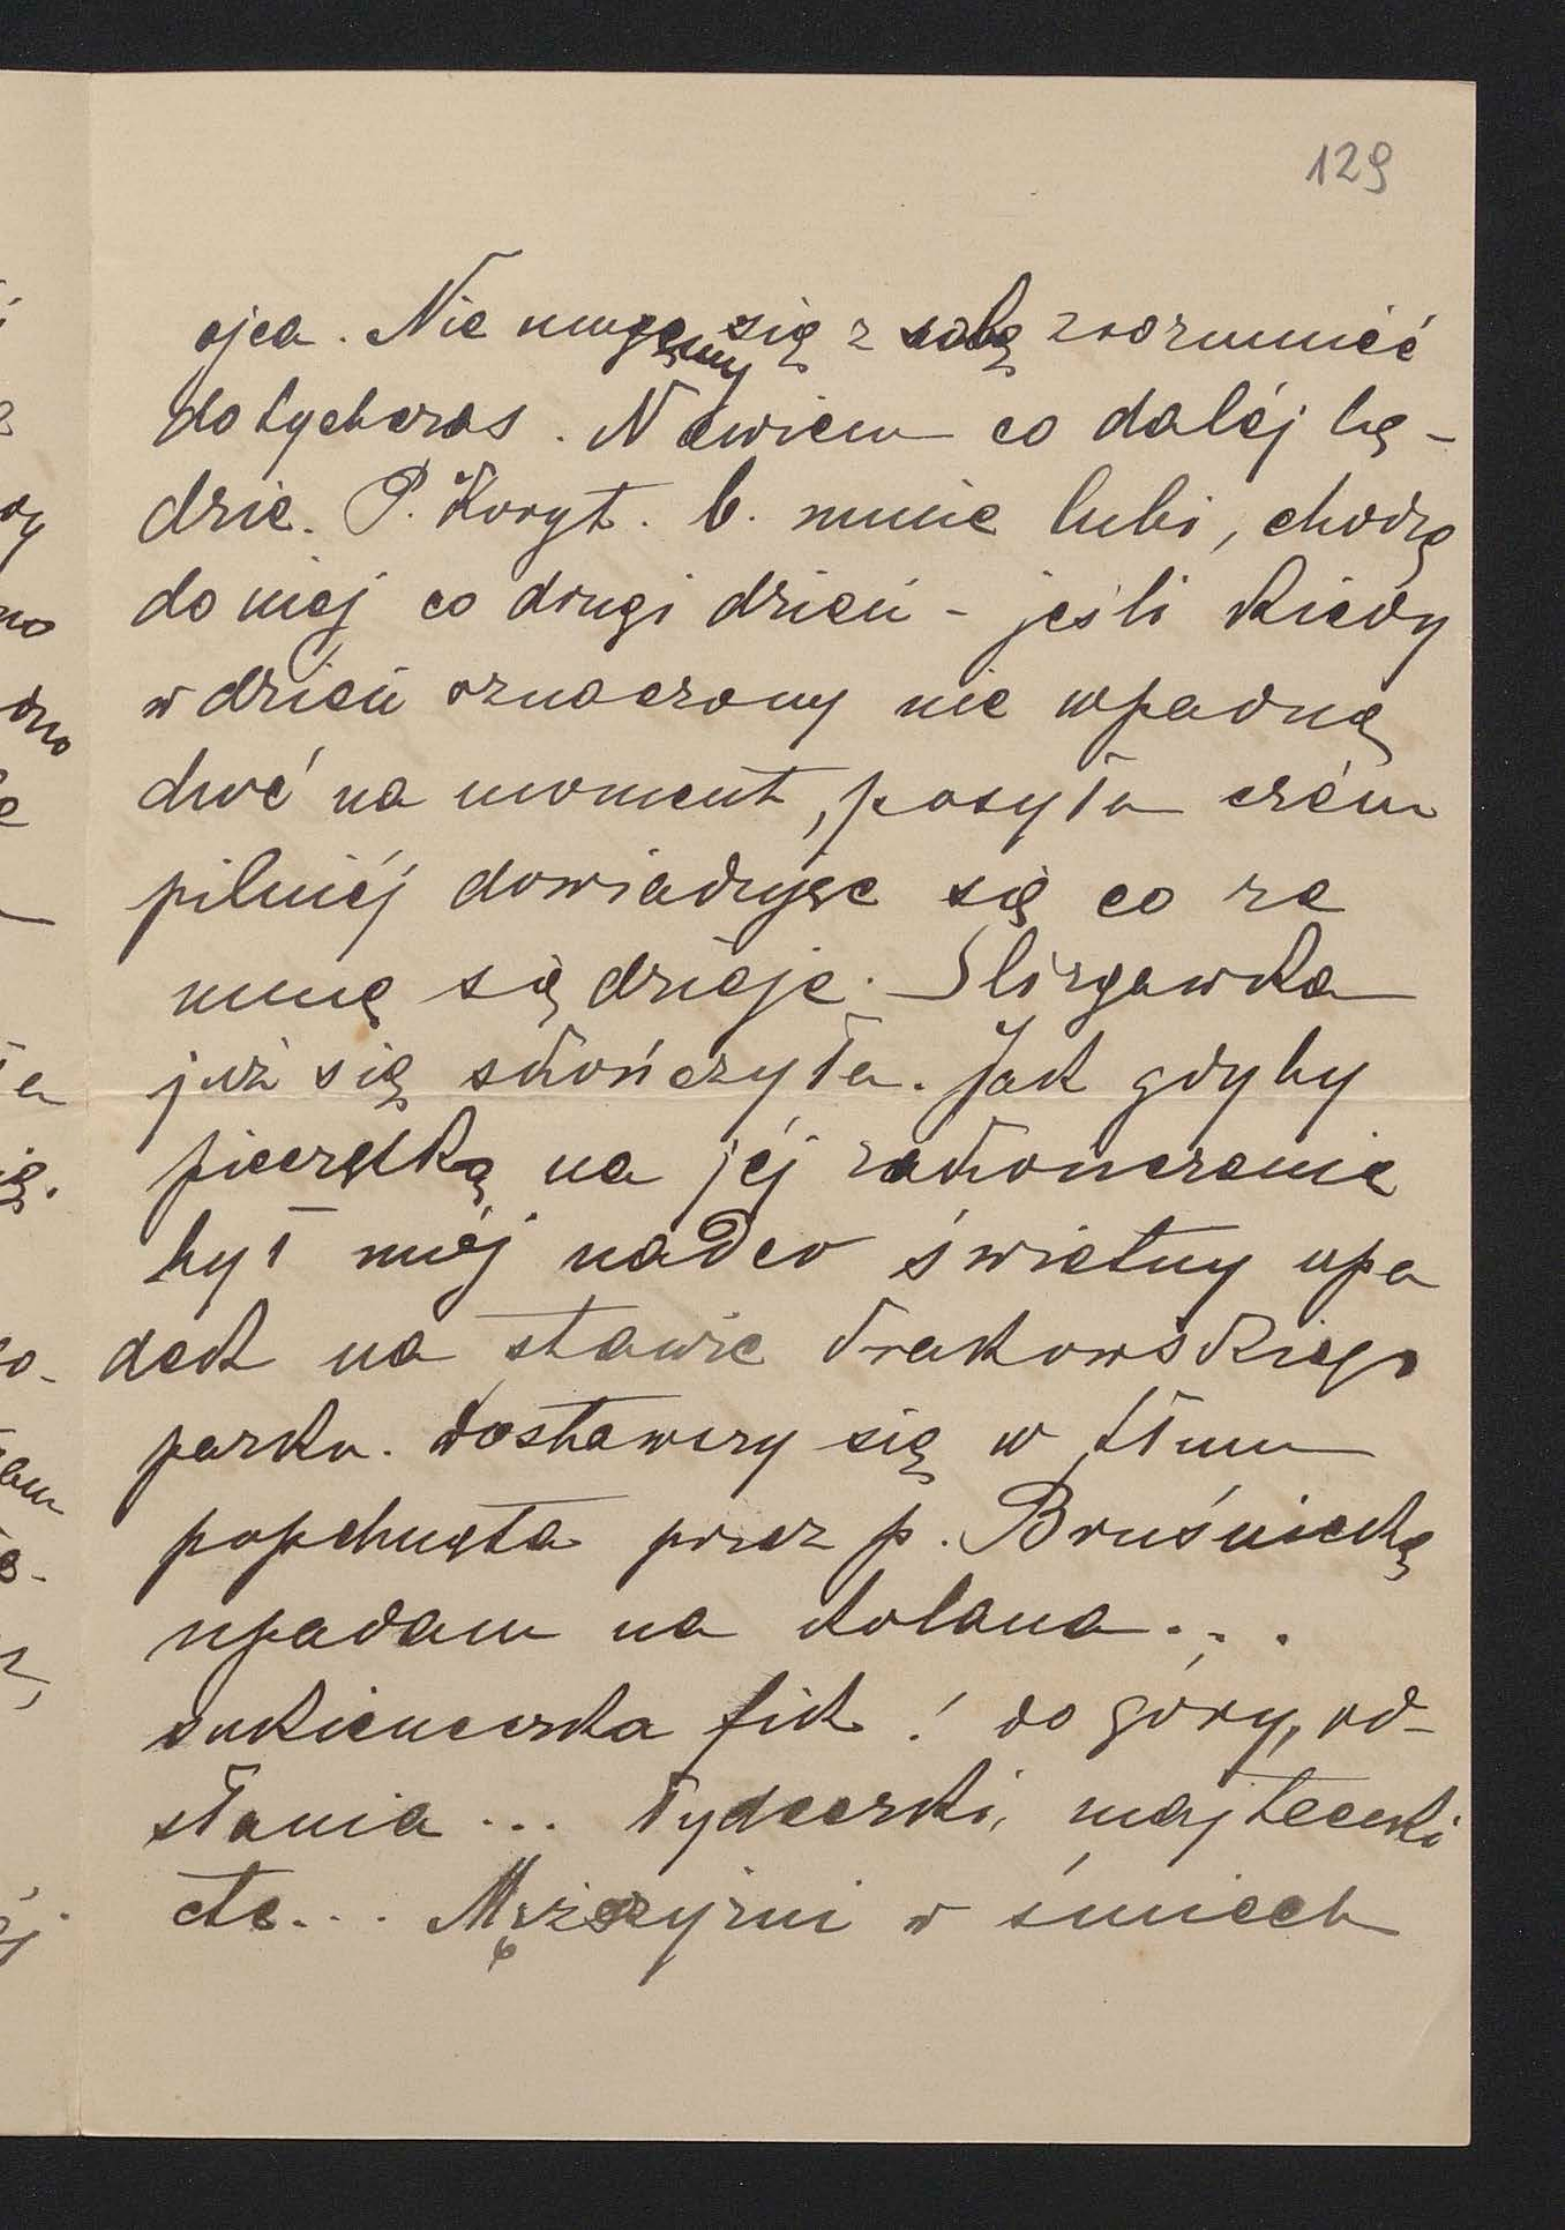 129
ojca. Nie mogęmy się z sobą zrozumieć
dotychczas. Niewiem co daléj bę-
dzie. P. Koryt. b. mnie lubi, chodzę
do niej co drugi dzień - jeśli kiedy
w dzień oznaczony nie wpadnę
choć na moment, posyła czém
pilniéj dowiadując się co ze
mną się dzieje. Slizgawka
już się skończyła. Jak gdyby
pieczątką na jéj zakończenie
był mój nader świetny upa
dek na stawie krakowskiego
parku. Dostawszy się w tłum
popchnęta przez p. Bruśnicką
upadam na kolana...
sukieneczka fik! do góry, od-
słania... łydeczki, majteczki
etc... Mężczyźni w śmiech